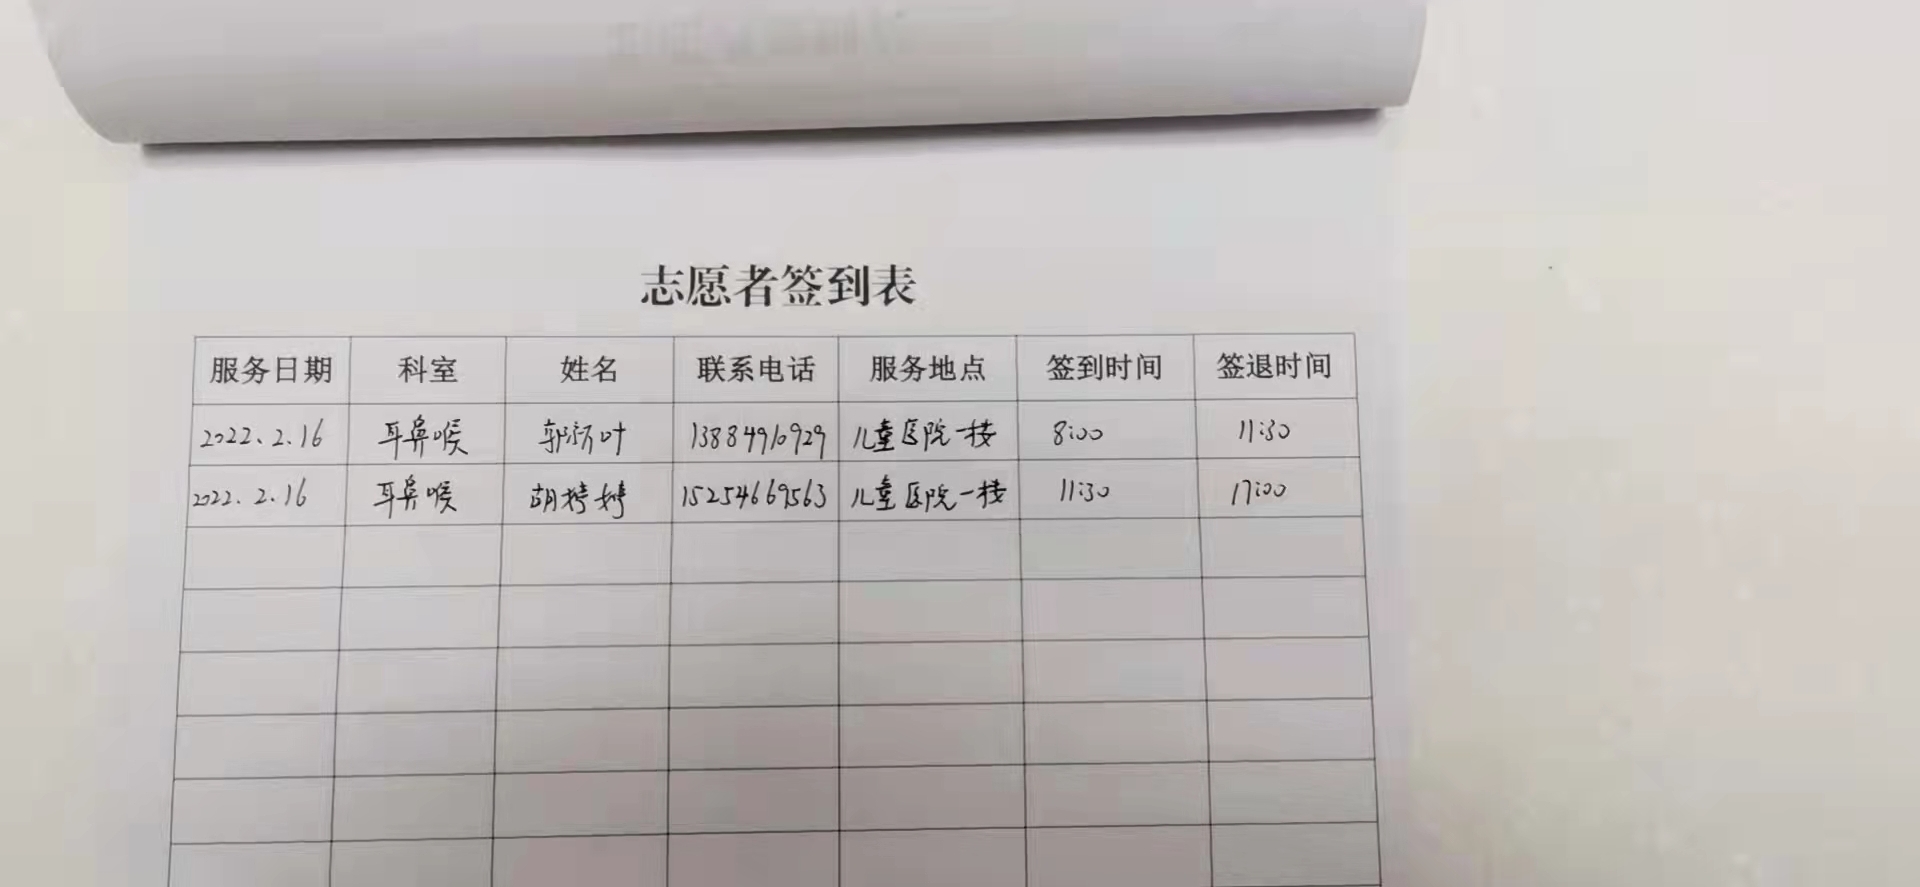 志愿者签到表
服务日期 科室 姓名 联系电话 服务地点 签到时间 签退时间
2022.2.16 耳鼻喉 郭新叶 13884910929 儿童医院一楼 8:00 11:30
2022.2.16 耳鼻喉 胡婷婷 15254669563 儿童医院一楼 11:30 17:00